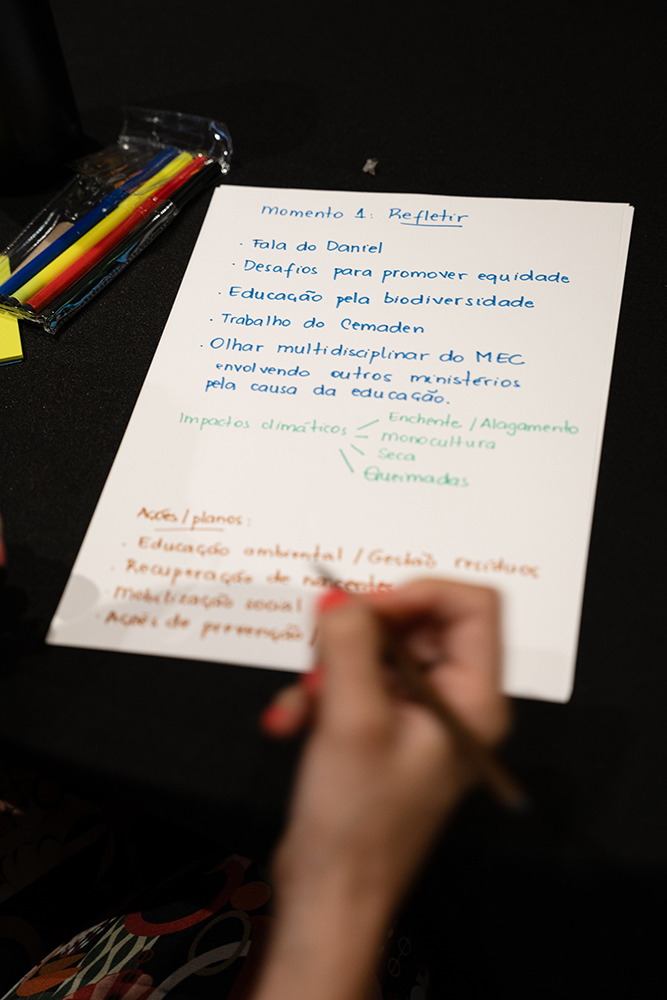 Momento 1: Refletir
· Fala do Daniel
· Desafios para promover equidade
· Educação pela biodiversidade
· Trabalho do Cemaden
· Olhar multidisciplinar do MEC
envolvendo outros ministérios
pela causa da educação.
Impactos climáticos
Enchente / Alagamento
monocultura
Seca
Queimadas
Ações/planos:
· Educação ambiental / Gestão resíduos
· Recuperação de nascentes
· Mobilização social
· Ações de prevenção /